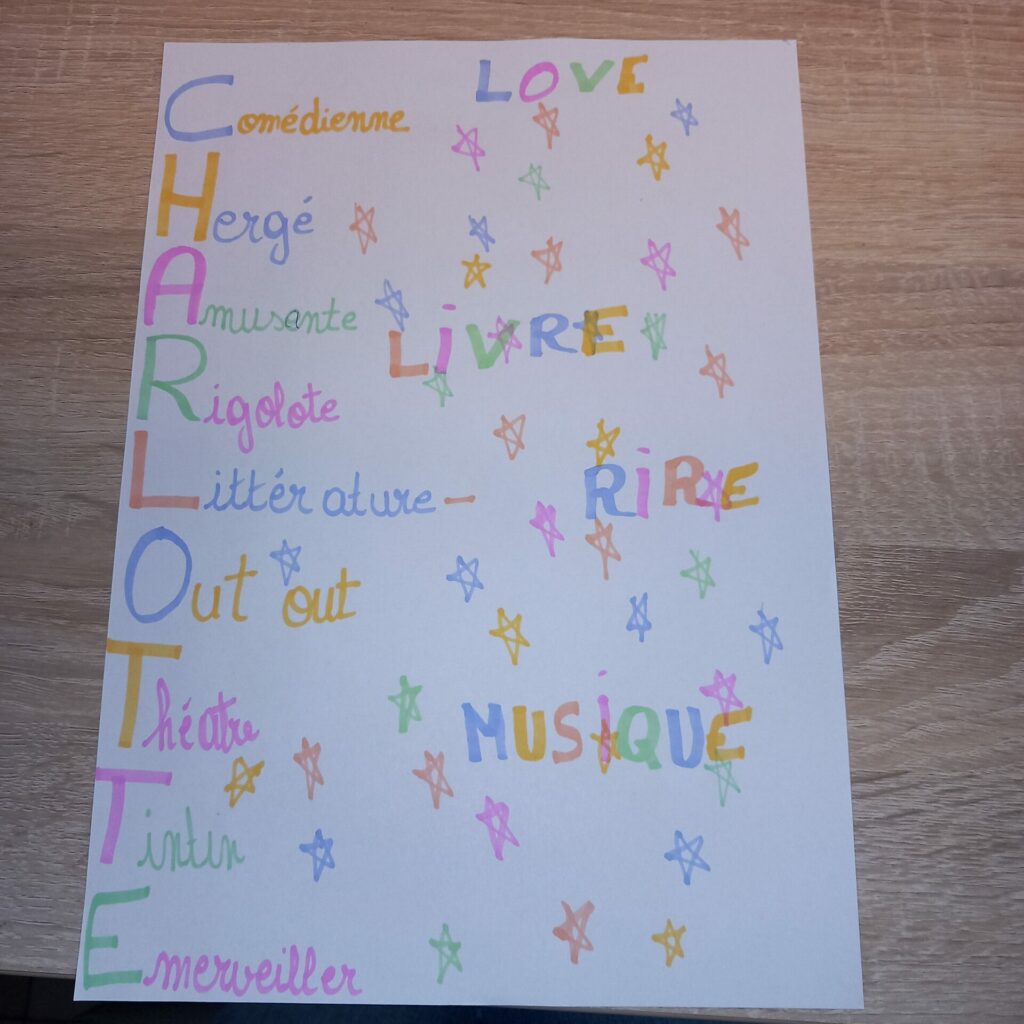 LOVE
Comédienne
Hergé
Amusante
LiVRE
Rigolote
RiRE
Littérature-
Out out
Théatre
MUSiQUE
Tintin
Emerveiller